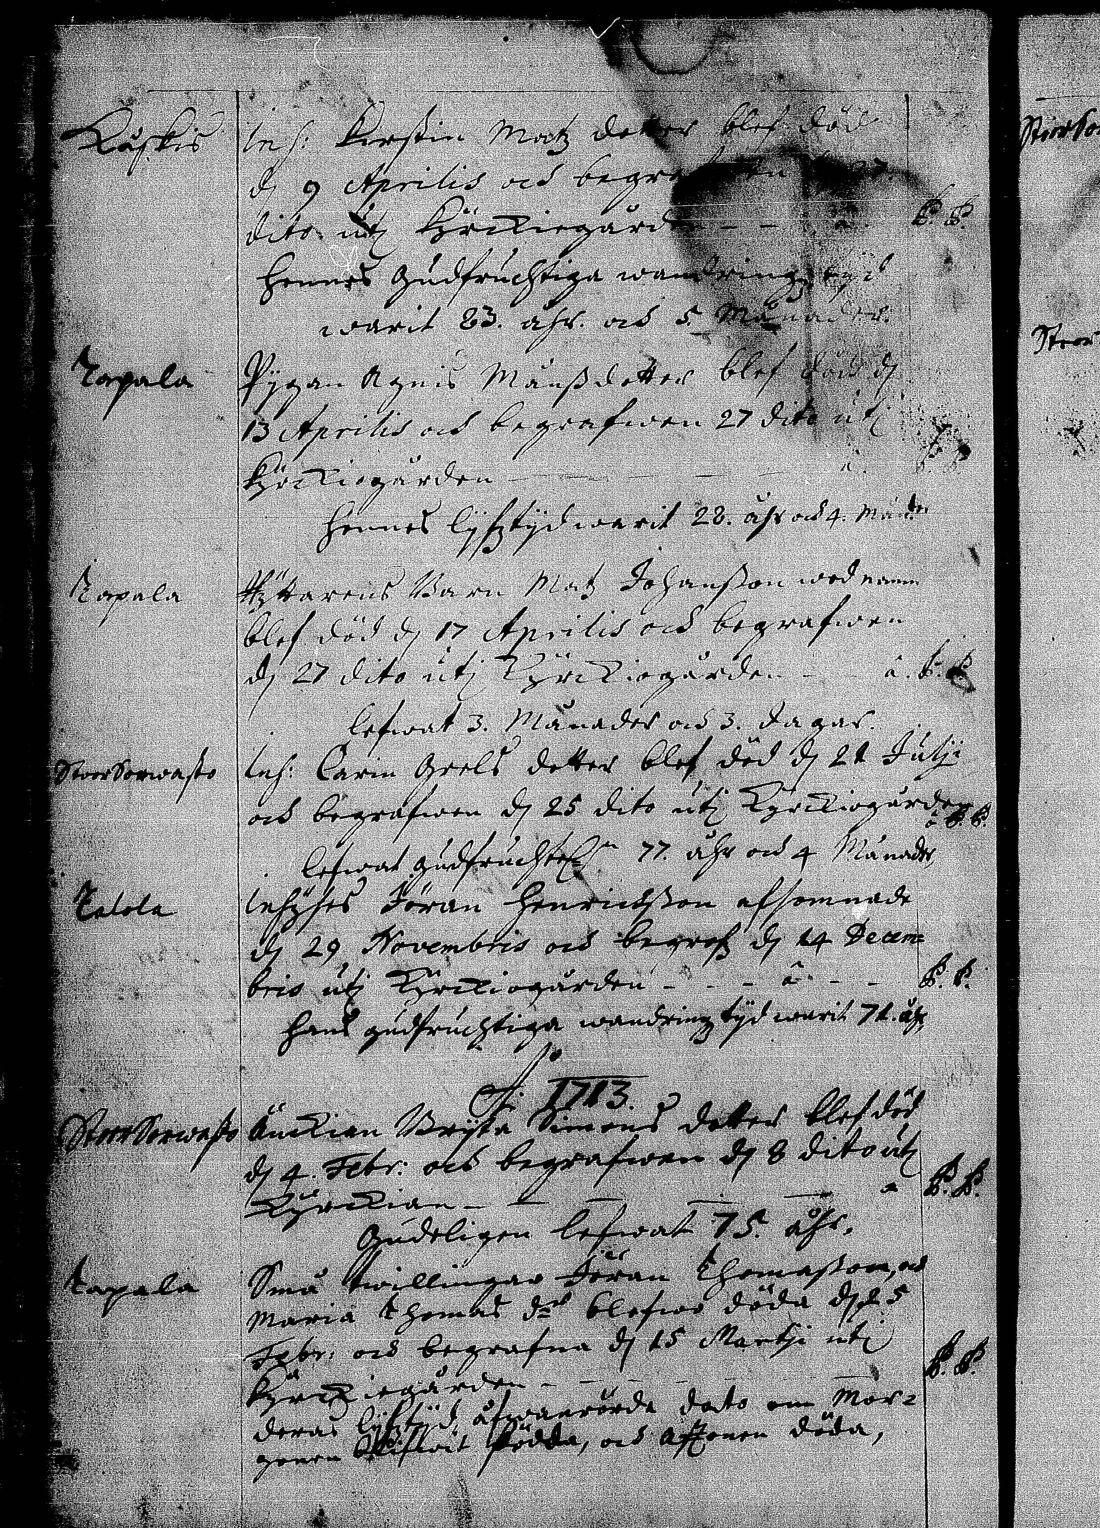 Kuskis Inh: Kerstin Matz dotter blef död
dj 9 Aprilis och begrafwen
dito utj Kyrckiogården
hennes gudfruchtiga wandringz tyd
warit 83. åhr. och 5. Månader.
Tapala Pygan Agnis Månßdotter blef död dj
13 Aprilis och begrafwen 27 dito utj
Kyrckiogården
hennes lyfztyd warit 28. åhr och 4. Månader
Tapala Ryttarens Barn Matz Johanßon wed namn
blef död dj 17 Aprilis och begrafwen
dj 27 dito utj Kyrckiogården
lefwat 3. Månader och 3. dagar.
StoorSorwasto Inh: Carin Grels dotter blef död dj 21 Julij
och begrafwen dj 25 dito utj Kyrckiogården
lefwat gudfruchtel. 77. åhr och 4 Månader,
Talola Inhyses Jöran Henrichßon afsomnade
dj 29 Novembris och begrafz dj 14 Decem=
bris utj Kyrckiogården
hans gudfruchtiga wandringz tyd warit 71. åhr
Ao 1713.
StoorSorwasto Änckian Bryta Simons dotter blef död
dj 4. Febr: och begrafwen dj 8 dito utj
Kyrckian
Gudeligen lefwat 75. åhr.
Tapala Små twillingar Jöran Thomaßon, och
Maria Thomas dr blefwo döda dj 25
Febr: och begrafna dj 15 Martij utj
Kyrckiogården
deras lyfztyd, åfwanrörde dato om Mor=
gonen blifwit födda, och afftonen döda,